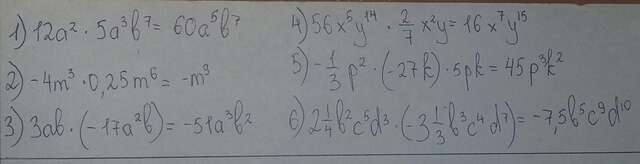 1) 12a² · 5a³b⁷ = 60a⁵b⁷
2) -4m³ · 0,25m⁶ = -m⁹
3) 3ab · (-17a²b) = -51a³b²
4) 56x⁵y¹⁴ · 2/7 x²y = 16x⁷y¹⁵
5) -1/3 p² · (-27k) · 5pk = 45p³k²
6) 2 1/4 b²c⁵d³ · (-3 1/3 b³c⁴d⁷) = -7,5b⁵c⁹d¹⁰